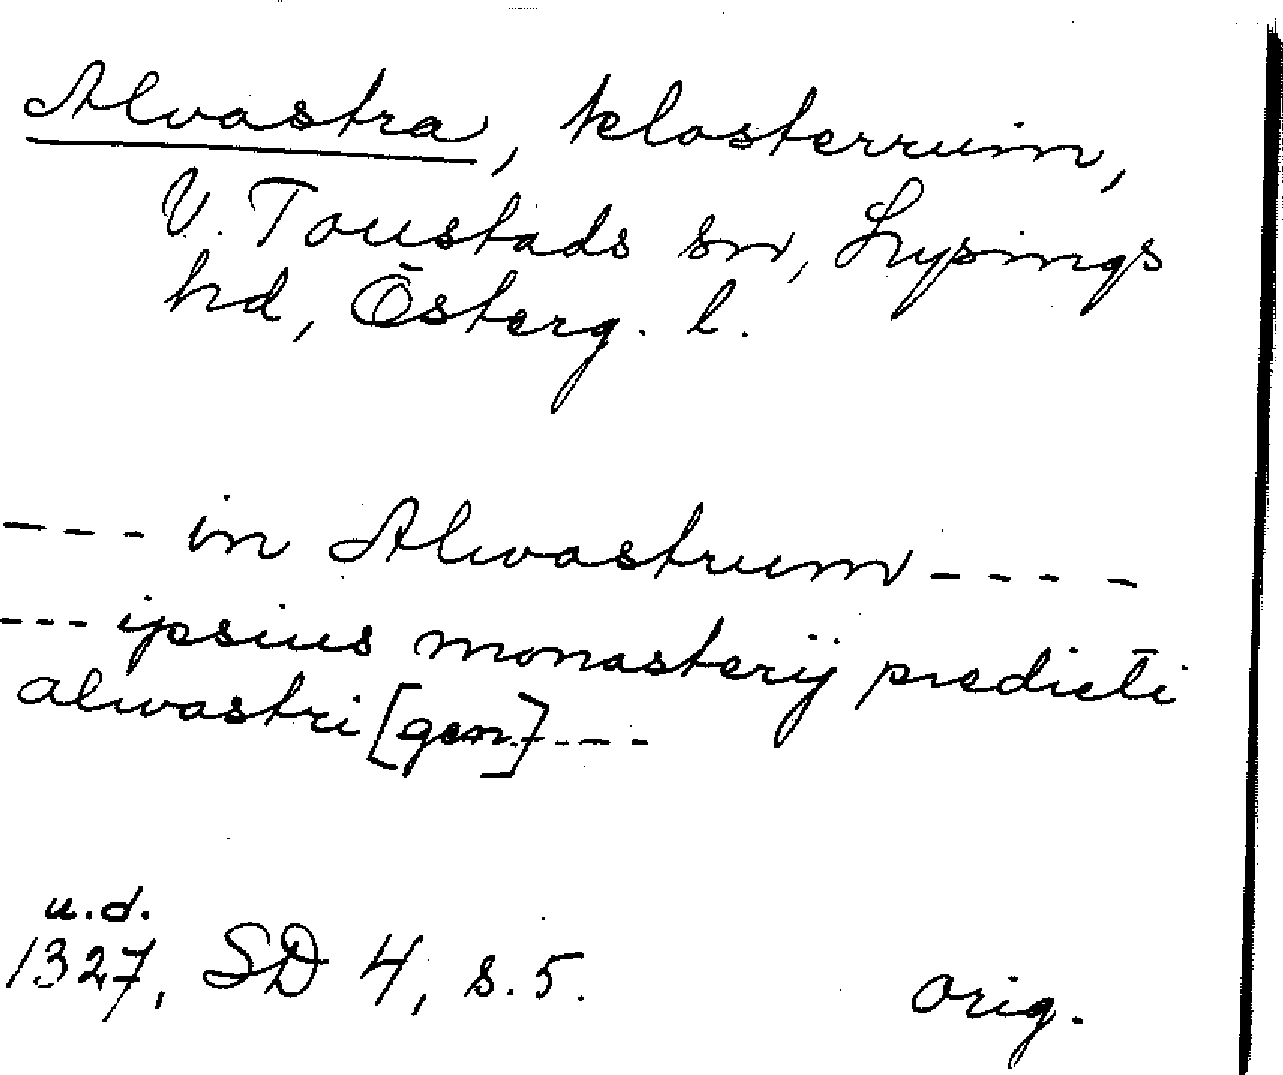 Alvastra, klosterruin,
V. Toustads sn, Lysings
hd, Österg. l.
---- in Alwastrum ----
--- ipsius monasterij predicti
alwastri [gen] ----
u.d.
1327, SD 4, s. 5.
orig.